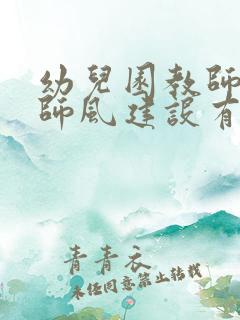 幼兒園教師
師風建設有
青青衣
未经同意禁止转载